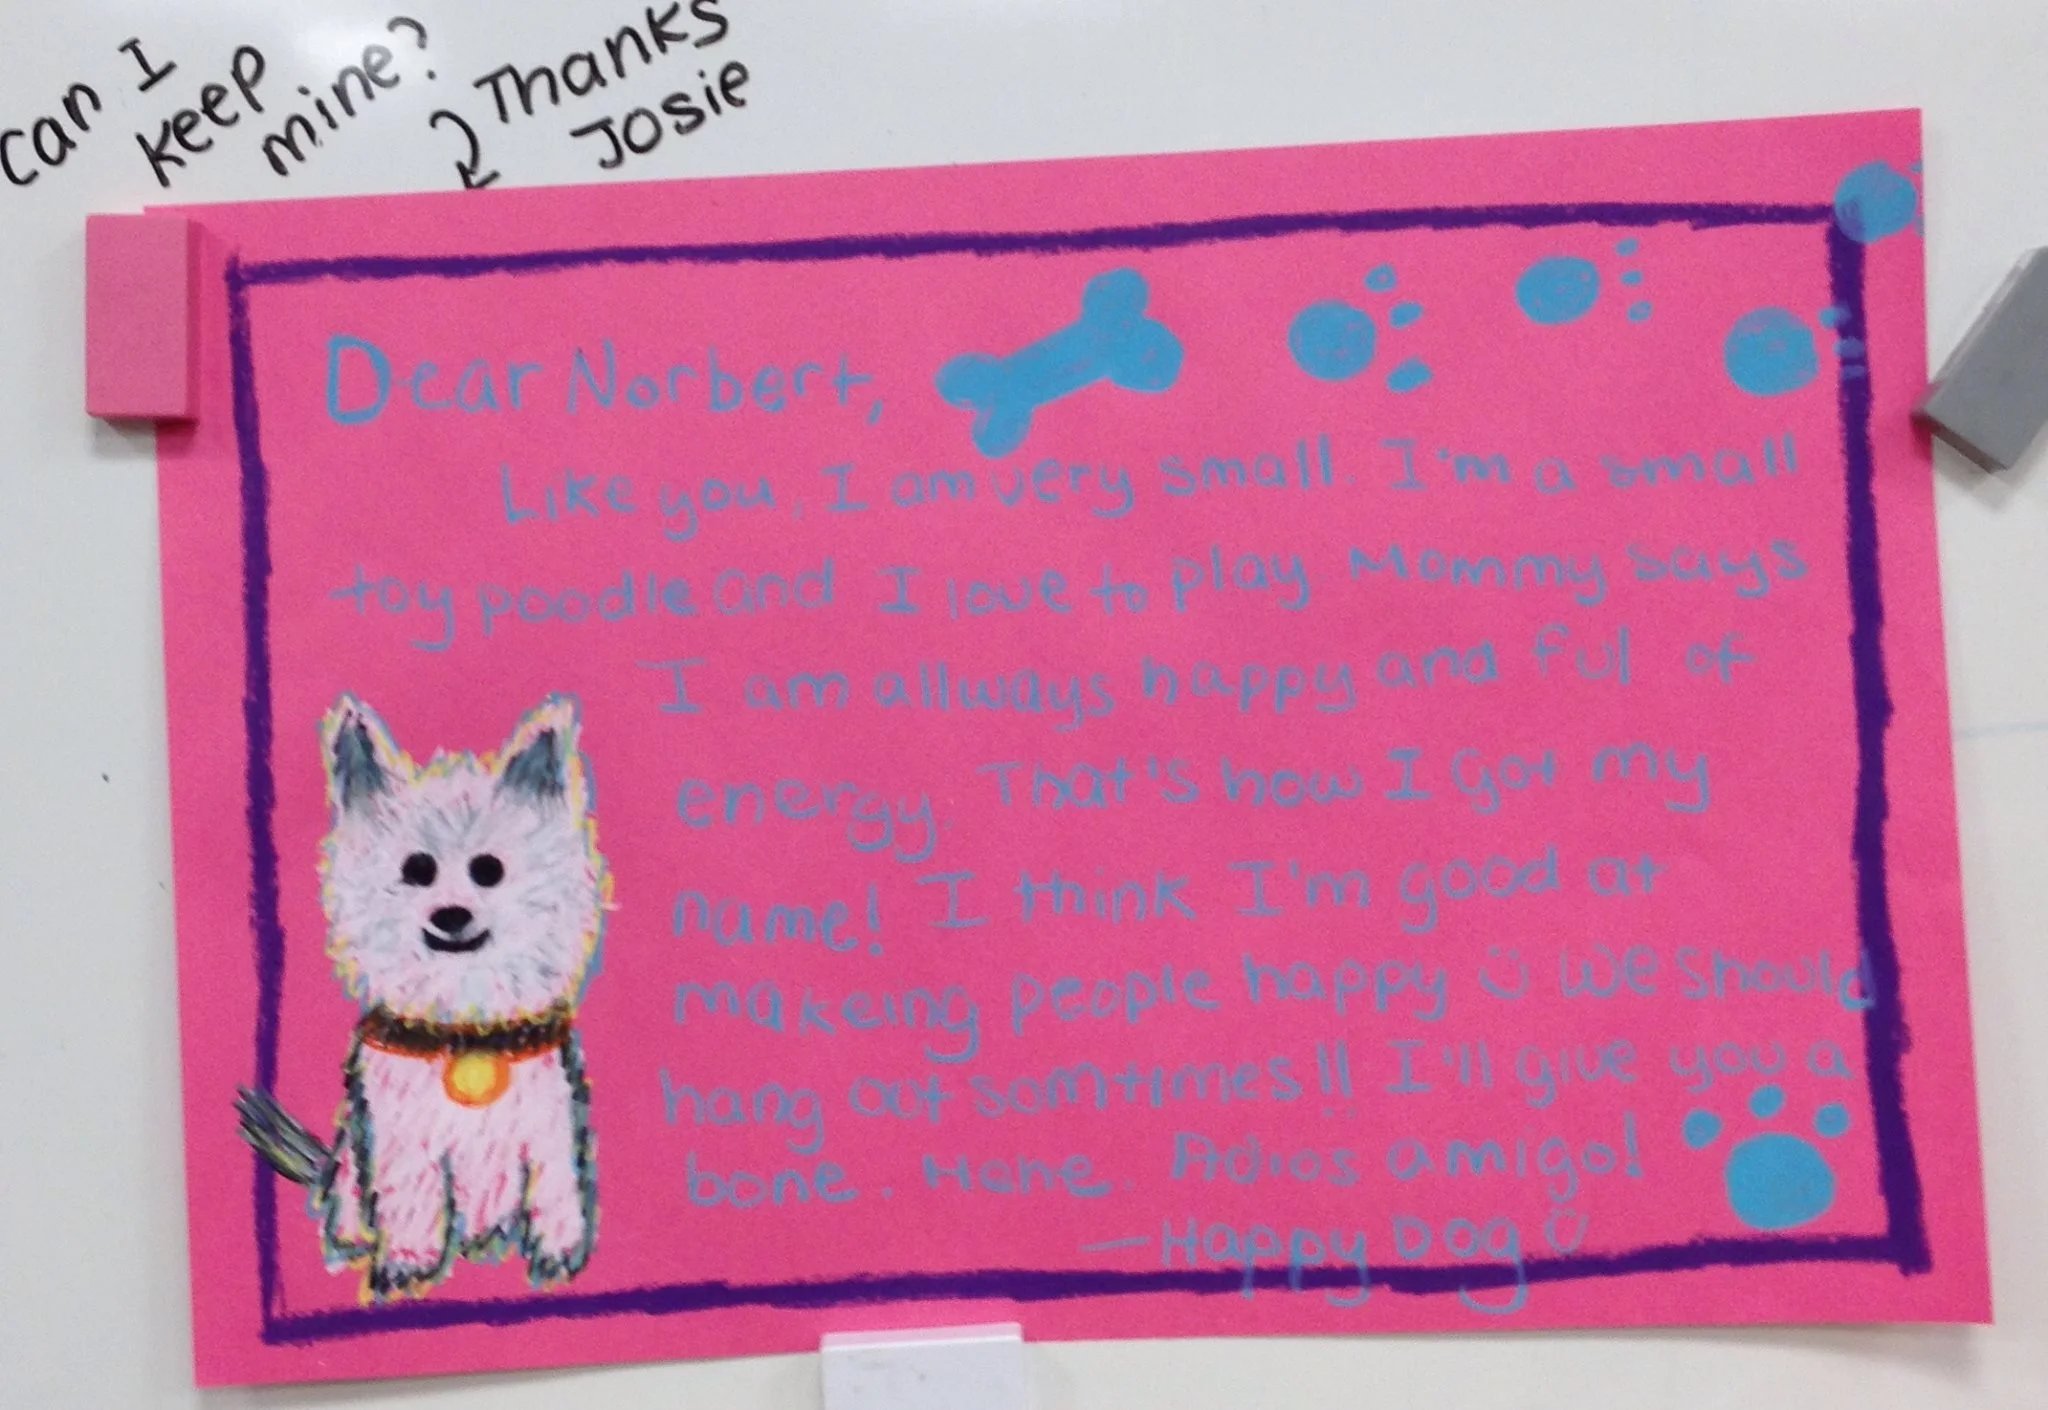 can I
keep
mine?
Thanks
Josie
Dear Norbert,
Like you, I am very small. I'm a small
toy poodle and I love to play. Mommy says
I am allways happy and ful of
energy. That's how I got my
name! I think I'm good at
makeing people happy We should
hang out somtimes!! I'll give you a
bone. Hehe. Adios amigo!
—Happy Dog